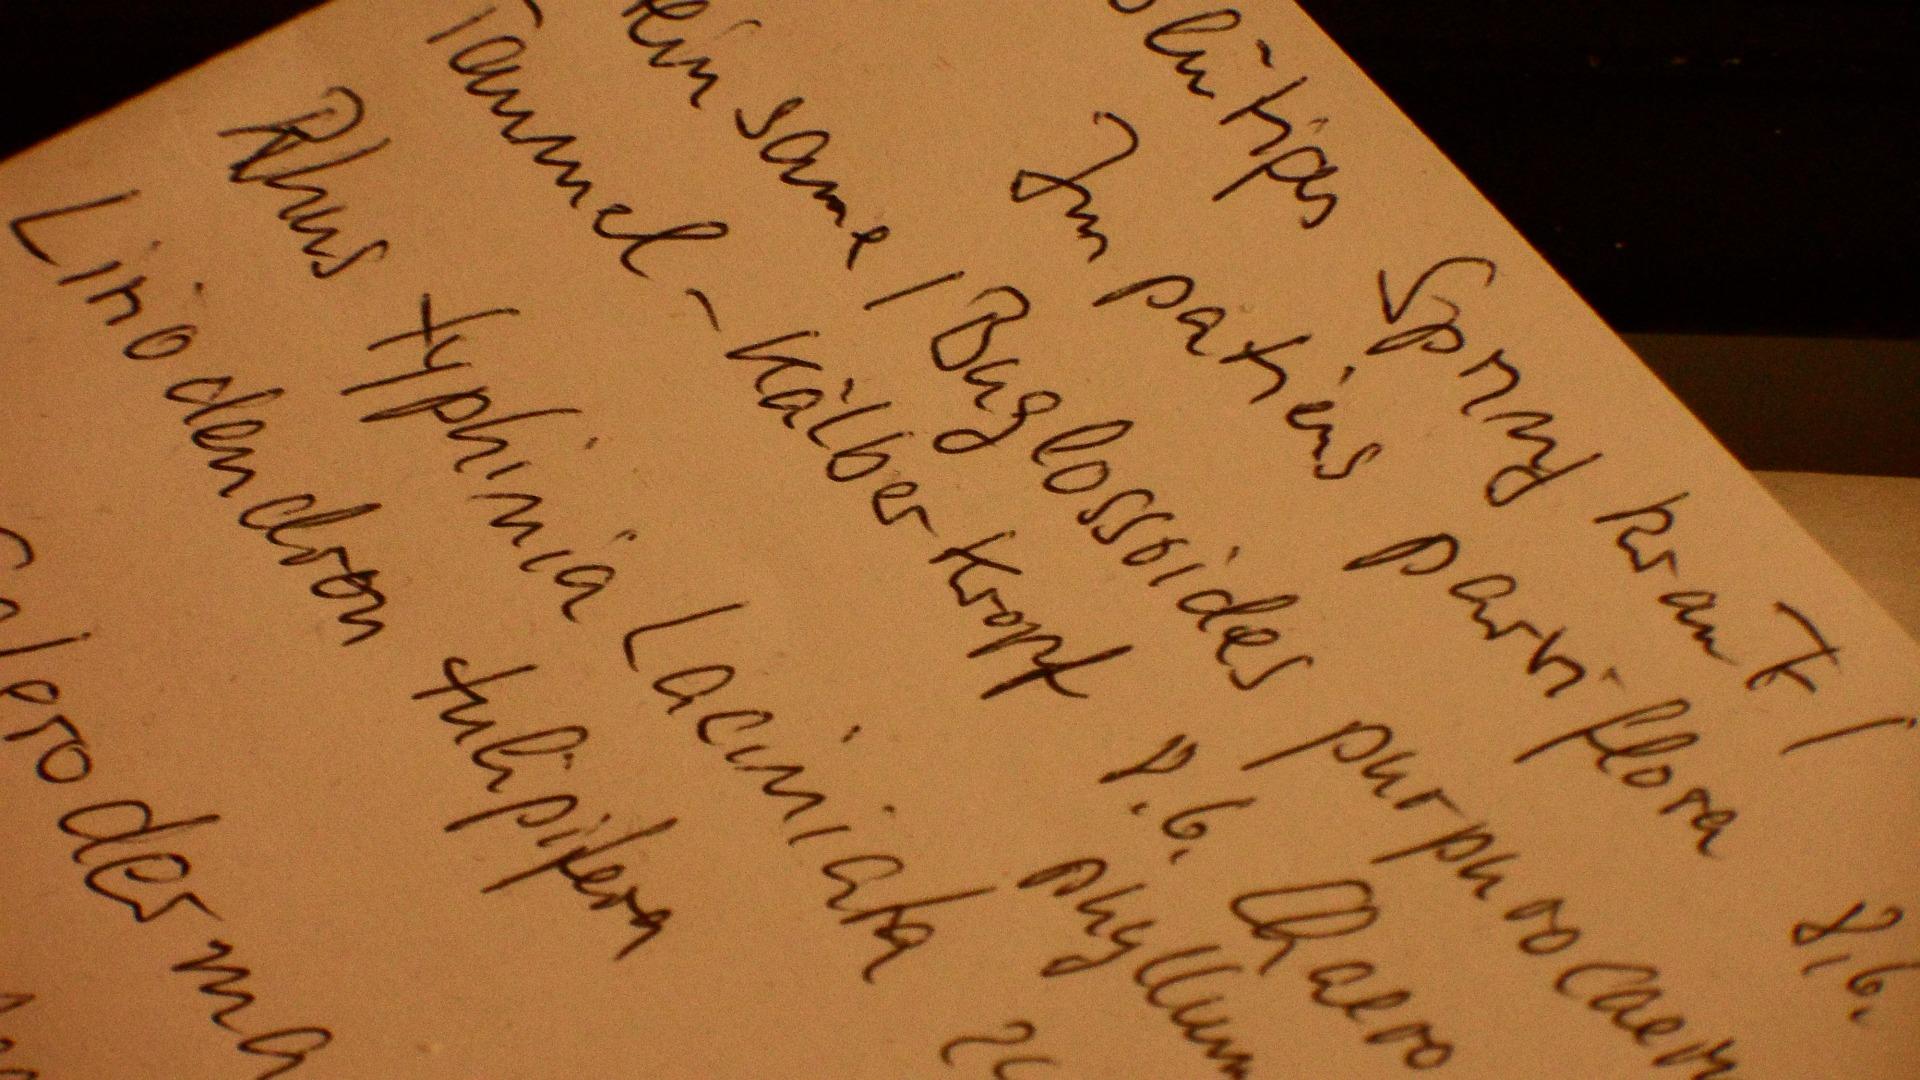 blütiges Springkraut /
Impatiens parviflora 8.6.
einsame / Buglossoides purpurocaer
Taumel-Kälber-Kropf 8.6. Chaero
phyllum
Rhus typhinia Laciniata
Liriodendron tulipifera
leroderma